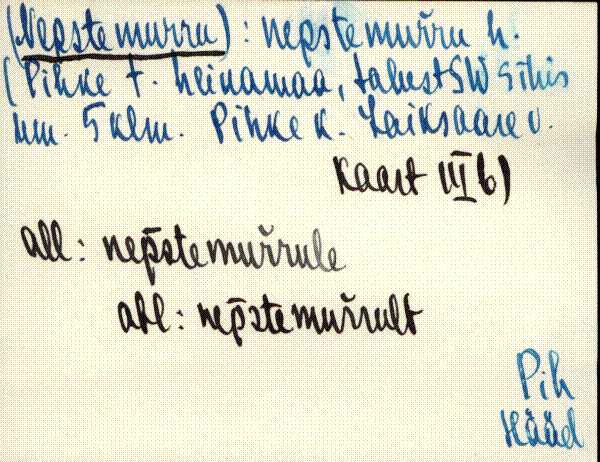 (Nepstemurru): nepstemuřru h.
(Pihke t. heinamaa, talust SW sihis
um. 5 klm. Pihke k. Laiksaare v.
Kaart III b)
all: nep̄stemuřrule
abl: nep̄stemuřrult
Pih
Hääd